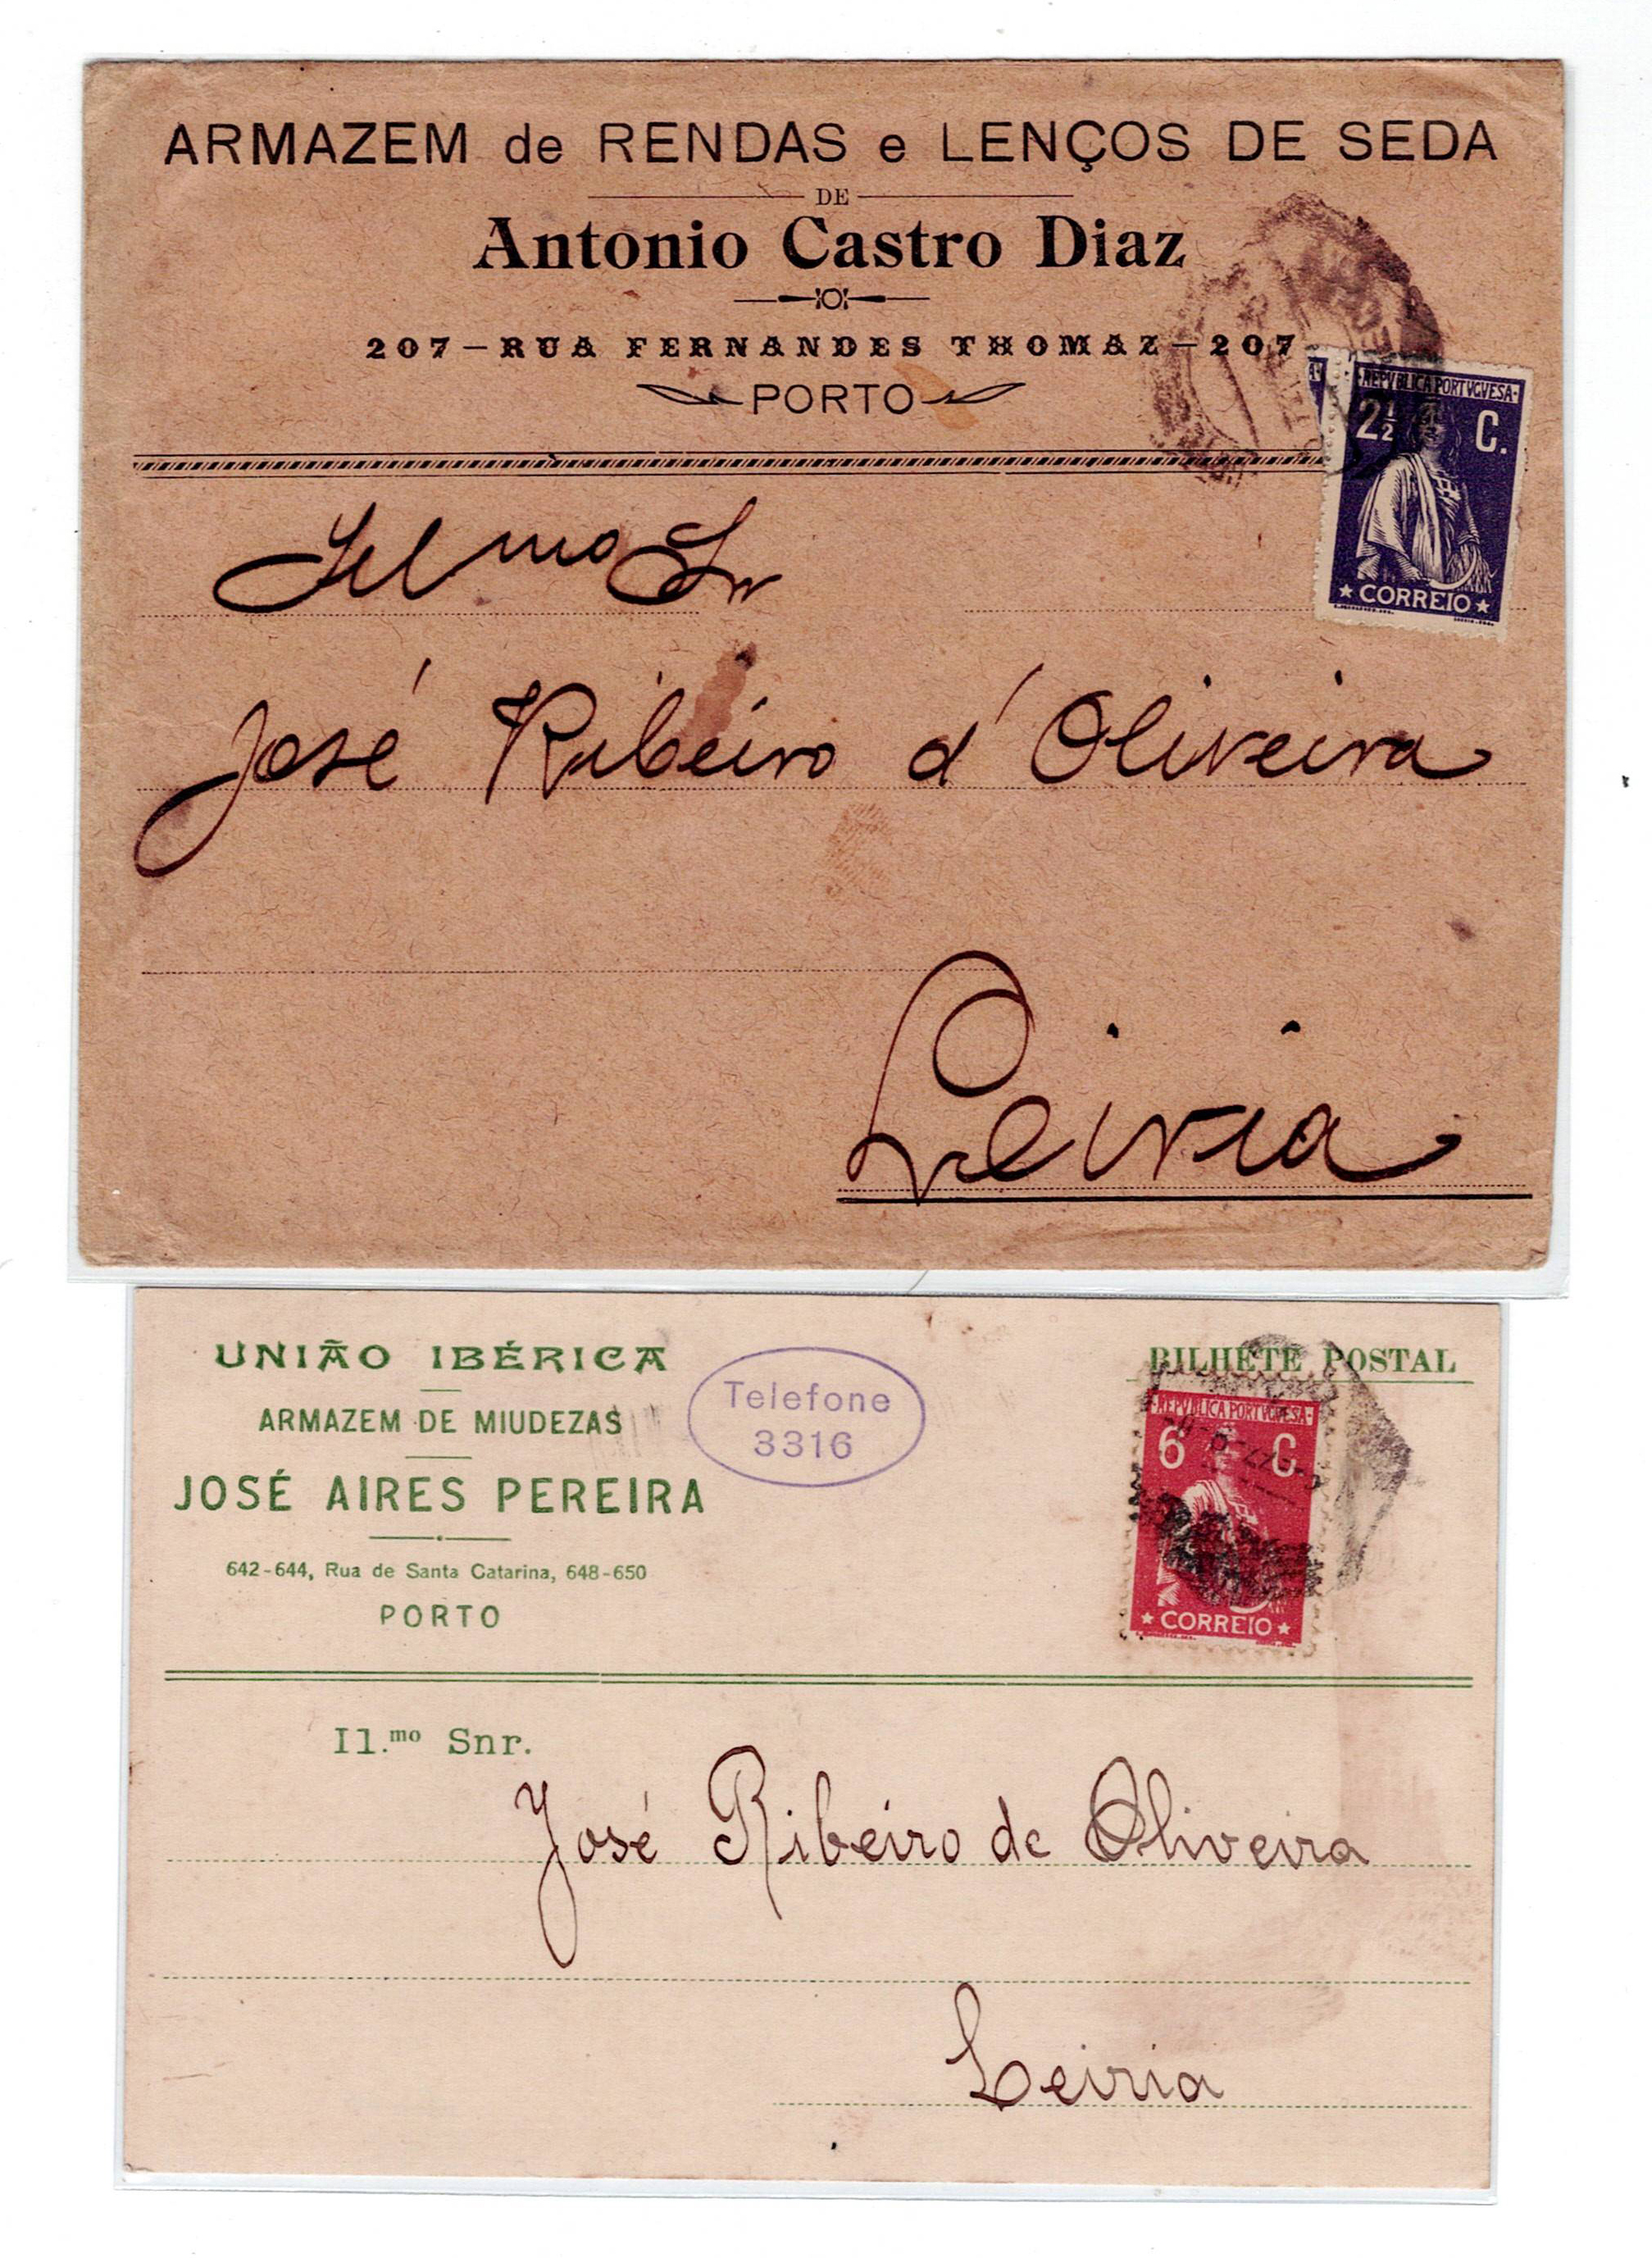 ARMAZEM de RENDAS e LENÇOS DE SEDA
DE
Antonio Castro Diaz
207-RUA FERNANDES THOMAZ-207
PORTO
REPVBLICA PORTVGVESA
2½ C.
CORREIO
Ilmo Sr
José Ribeiro d'Oliveira
Leiria
UNIÃO IBÉRICA
ARMAZEM DE MIUDEZAS
JOSÉ AIRES PEREIRA
642-644, Rua de Santa Catarina, 648-650
PORTO
Telefone
3316
BILHETE POSTAL
REPVBLICA PORTVGVESA
6 C.
CORREIO
Il.mo Snr.
José Ribeiro de Oliveira
Leiria